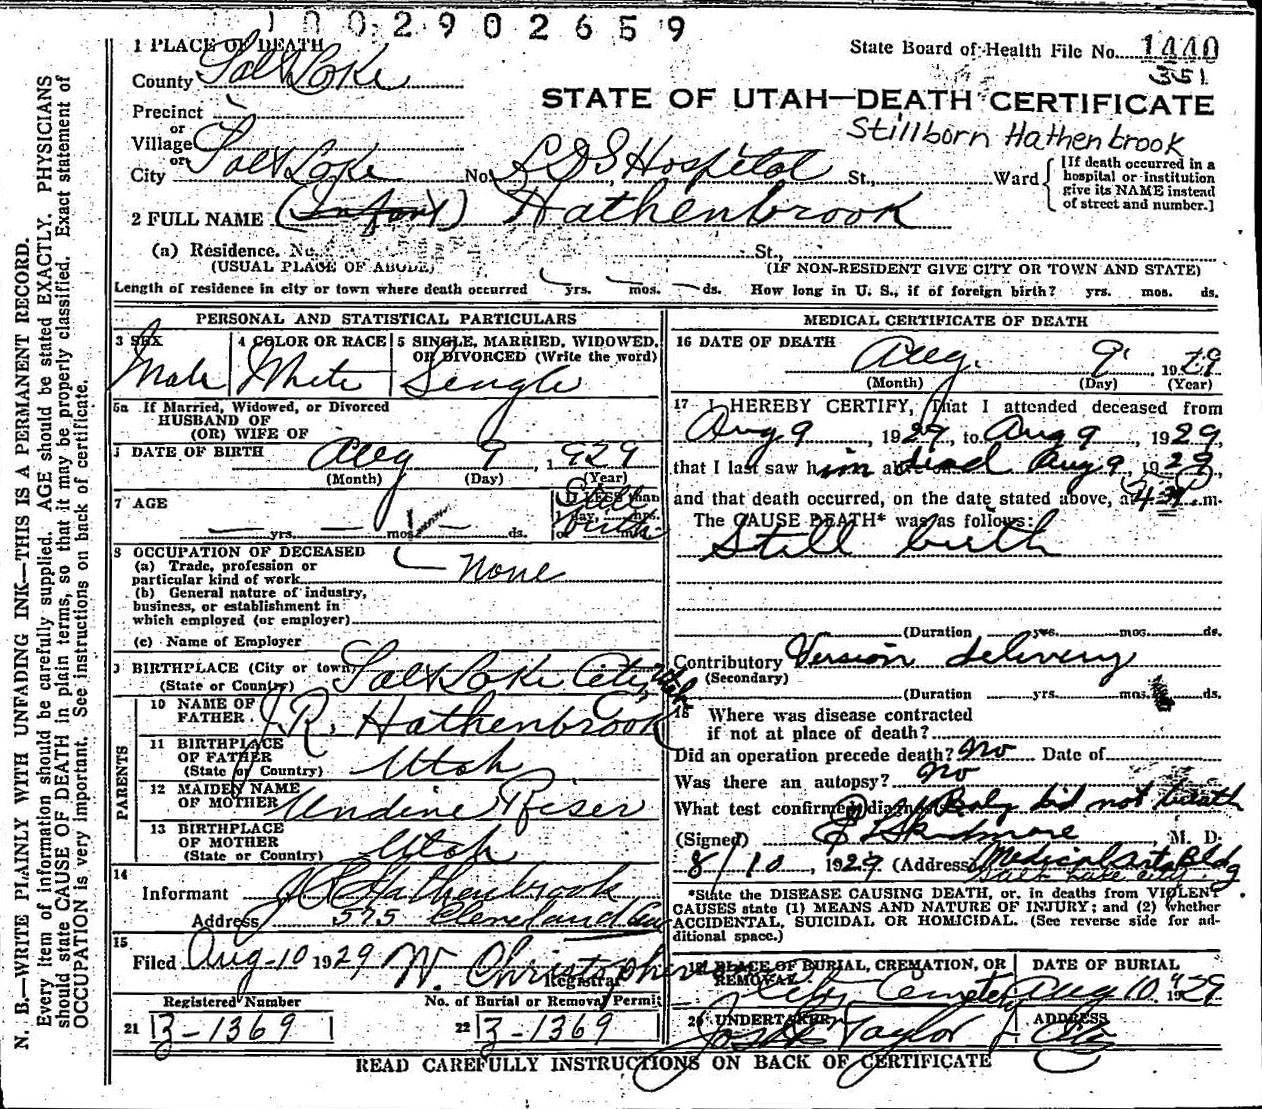 1002902659
1 PLACE OF DEATH
State Board of Health File No. 1440
351
County Salt Lake
STATE OF UTAH—DEATH CERTIFICATE
Precinct
Stillborn Hathenbrook
or
Village
or
City Salt Lake No. LDS Hospital St., Ward
[If death occurred in a
hospital or institution
give its NAME instead
of street and number.]
2 FULL NAME (Infant) Hathenbrook
(a) Residence. No. St.,
(USUAL PLACE OF ABODE)
(IF NON-RESIDENT GIVE CITY OR TOWN AND STATE)
Length of residence in city or town where death occurred yrs. mos. ds. How long in U. S., if of foreign birth? yrs. mos. ds.
PERSONAL AND STATISTICAL PARTICULARS
3 SEX
Male
4 COLOR OR RACE
White
5 SINGLE, MARRIED, WIDOWED,
OR DIVORCED (Write the word)
Single
5a If Married, Widowed, or Divorced
HUSBAND OF
(OR) WIFE OF
DATE OF BIRTH Aug 9, 1929
(Month) (Day) (Year)
7 AGE
yrs. mos. ds.
If LESS than
1 day, hrs.
or min.
Still
birth
8 OCCUPATION OF DECEASED
(a) Trade, profession or
particular kind of work None
(b) General nature of industry,
business, or establishment in
which employed (or employer)
(c) Name of Employer
9 BIRTHPLACE (City or town) Salt Lake City, Utah
(State or Country)
PARENTS
10 NAME OF
FATHER J. R. Hathenbrook
11 BIRTHPLACE
OF FATHER
(State or Country) Utah
12 MAIDEN NAME
OF MOTHER Undine Riser
13 BIRTHPLACE
OF MOTHER
(State or Country) Utah
14
Informant J R Hathenbrook
Address 575 Cleveland Ave
15
Filed Aug-10 1929 W. Christopherson
Registrar
Registered Number
No. of Burial or Removal Permit
21 B-1369
22 B-1369
MEDICAL CERTIFICATE OF DEATH
16 DATE OF DEATH
Aug. 9, 1929
(Month) (Day) (Year)
17 I HEREBY CERTIFY, That I attended deceased from
Aug 9, 1929, to Aug 9, 1929,
that I last saw him dead Aug 9, 1929,
and that death occurred, on the date stated above, at m.
The CAUSE DEATH* was as follows:
Still birth
(Duration yrs. mos. ds.
Contributory Version delivery
(Secondary)
(Duration yrs. mos. ds.
18 Where was disease contracted
if not at place of death?
Did an operation precede death? No Date of
Was there an autopsy? No
What test confirmed diagnosis? Baby did not breath
(Signed) E L Skidmore M. D.
8/10, 1929 (Address) Medical Arts Bldg
Salt Lake City.
*State the DISEASE CAUSING DEATH, or, in deaths from VIOLENT
CAUSES state (1) MEANS AND NATURE OF INJURY; and (2) whether
ACCIDENTAL, SUICIDAL OR HOMICIDAL. (See reverse side for ad-
ditional space.)
19 PLACE OF BURIAL, CREMATION, OR
REMOVAL
City Cemetery
DATE OF BURIAL
Aug 10, 1929
20 UNDERTAKER
Taylor
ADDRESS
City
READ CAREFULLY INSTRUCTIONS ON BACK OF CERTIFICATE
N. B.—WRITE PLAINLY WITH UNFADING INK—THIS IS A PERMANENT RECORD.
Every item of information should be carefully supplied. AGE should be stated EXACTLY. PHYSICIANS
should state CAUSE OF DEATH in plain terms, so that it may be properly classified. Exact statement of
OCCUPATION is very important. See instructions on back of certificate.